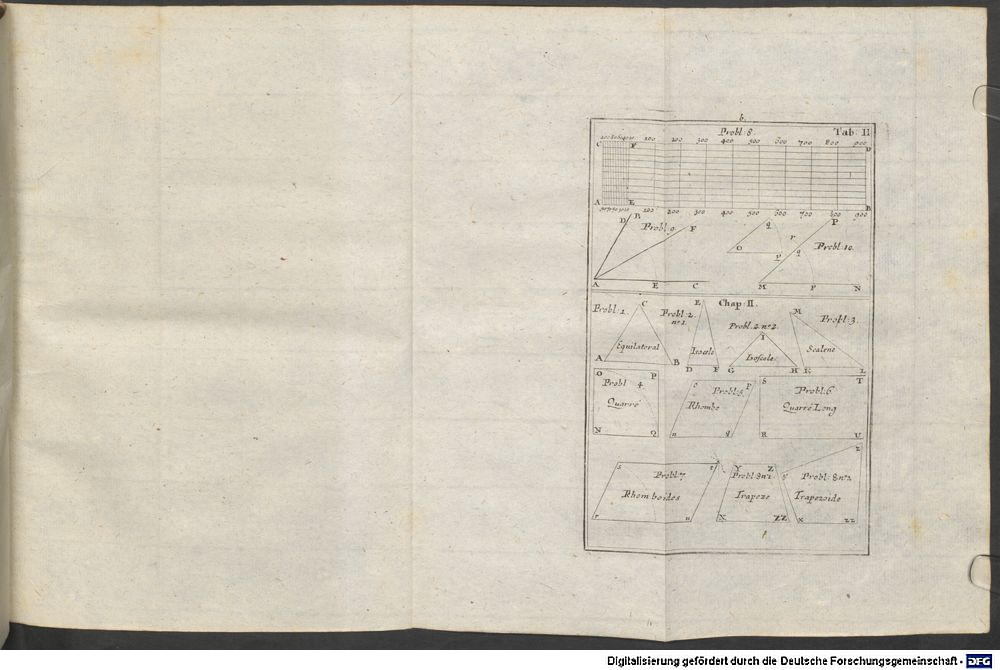 Probl: 8. Tab: II
200 300 400 500 600 700 800 900
C F D
A E B
100 200 300 400 500 600 700 800 900
D B F Probl: 9.
A E C
q r P
O P q Probl: 10.
M P N
Chap: II.
Probl: 1. C
Equilateral
A B
Probl: 2. n.º 1. E
Isocele
D F
Probl. 2. n.º 2.
I
Isoscele
G H
M Probl: 3.
Scalene
K L
O P
Probl 4.
Quarré
N Q
o P
Probl: 5.
Rhombe
n q
S T
Probl: 6
Quarré Long
R U
s t
Probl: 7
Rhomboides
r u
Y Z
Probl: 8 n.º 1.
Trapeze
X ZZ
y z
Probl: 8 n.º 2.
Trapezoide
x zz
Digitalisierung gefördert durch die Deutsche Forschungsgemeinschaft - DFG